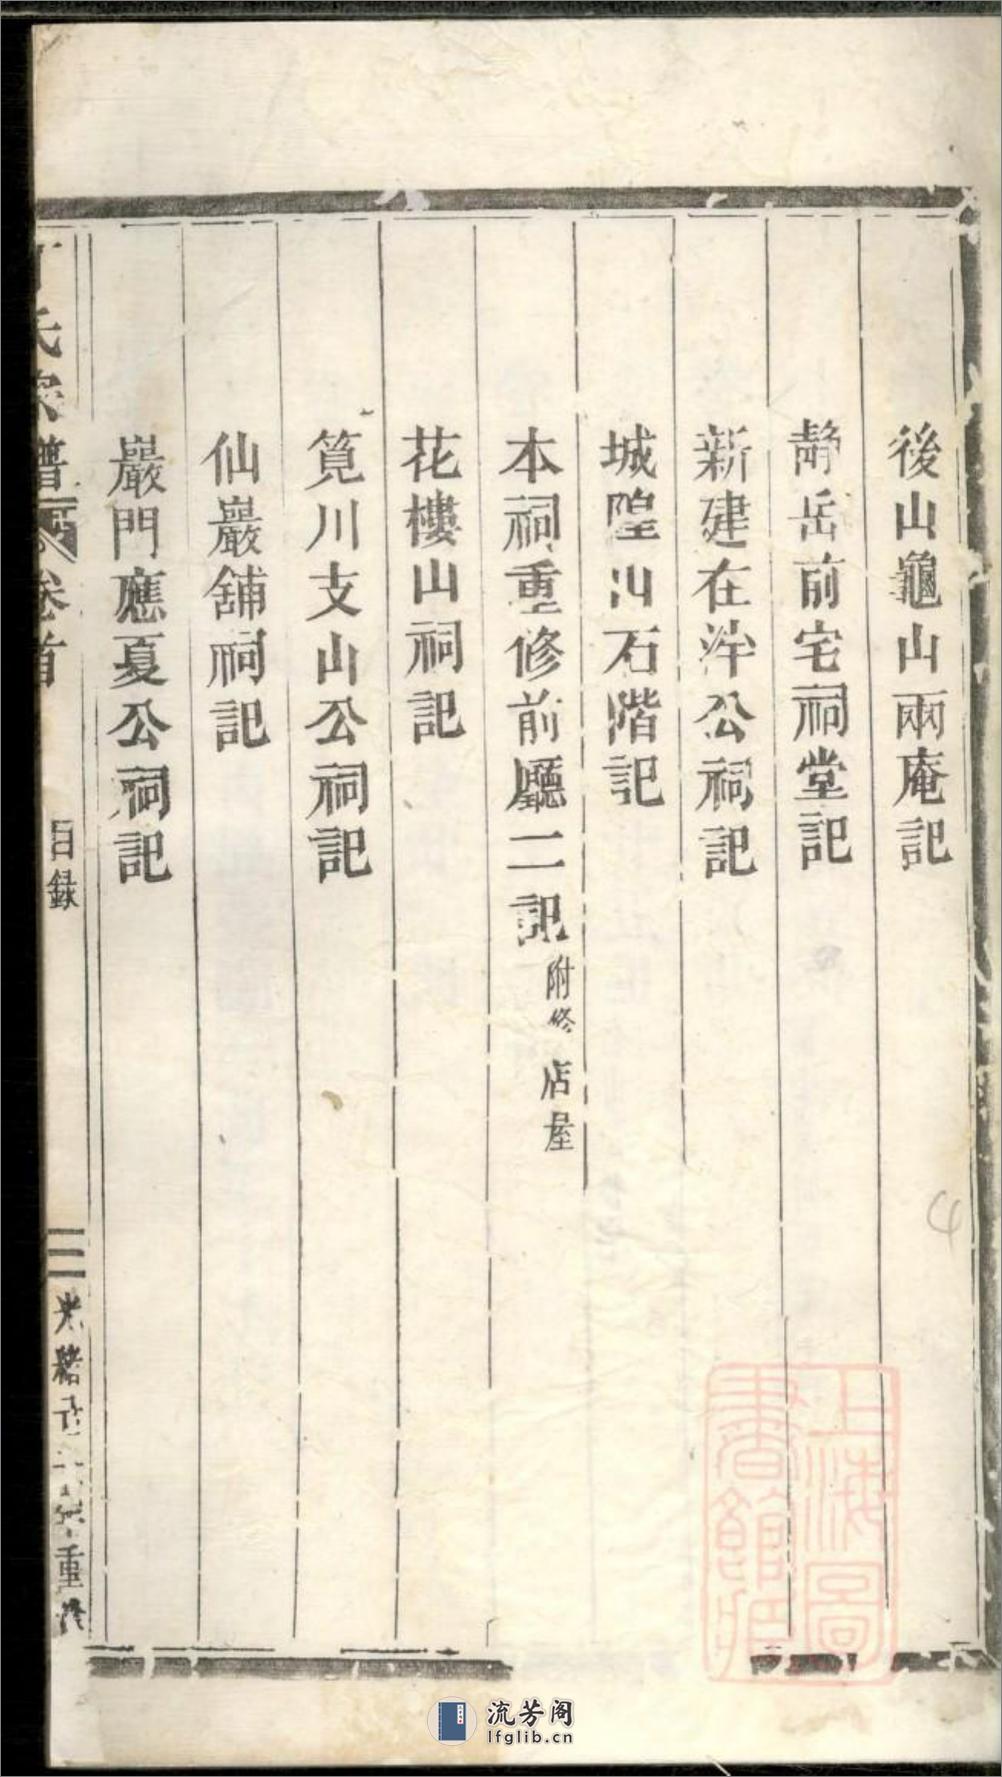 後山龜山兩庵記
靜岳前宅祠堂記
新建在泮公祠記
城隍山石階記
本祠重修前廳二記 附修店屋
花樓山祠記
筧川支山公祠記
仙巖舖祠記
巖門應夏公祠記
氏家譜 卷首 目録 三 光緒 重修
上海圖書館藏
流芳阁
lfglib.cn